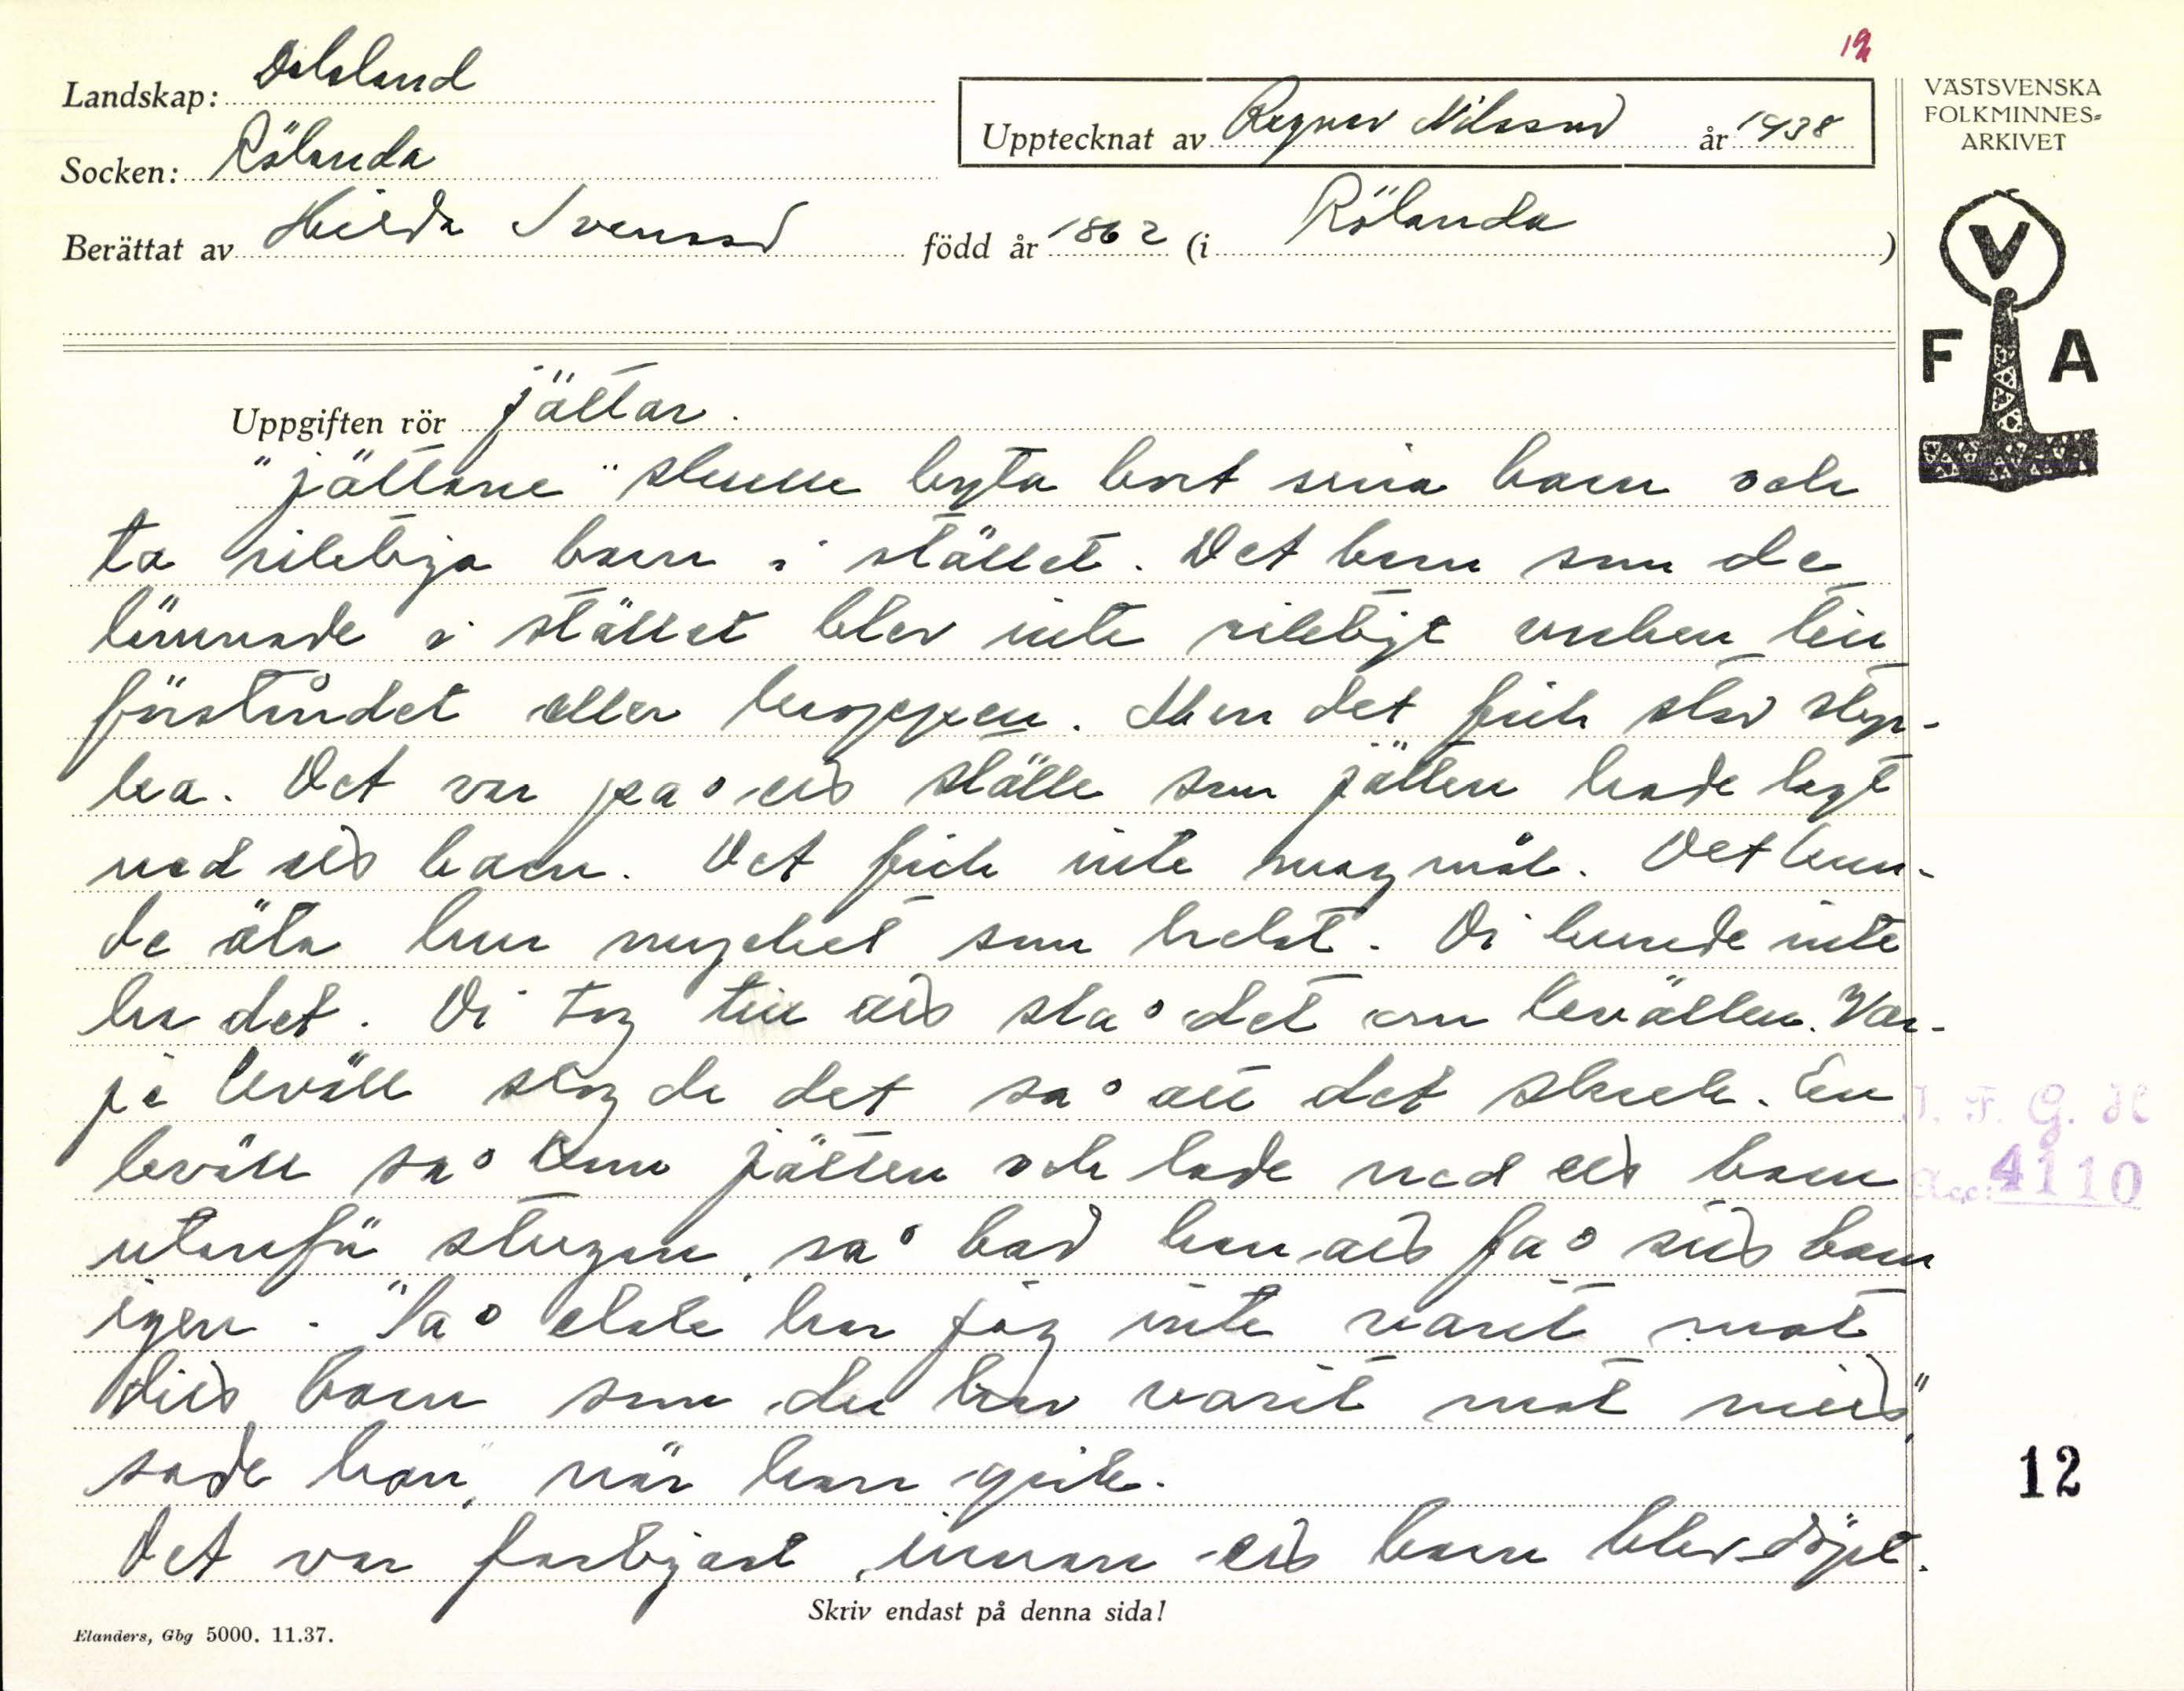 12
Landskap: Dalsland
Upptecknat av Ragnar Nilsson år 1938
VÄSTSVENSKA
FOLKMINNES-
ARKIVET
Socken: Rölanda
Berättat av Hilda Svensson född år 1862 (i Rölanda)
V
F A
Uppgiften rör jättar.
"jättane" skulle byta bort sina barn och
ta riktiga barn i stället. Det barn som de
lämnade i stället blev inte riktigt varken till
förståndet eller kroppen. Men det fick stor styr-
ka. Det var på ett ställe som jätten hade lagt
ned ett barn. Det fick inte nog mat. Det kun-
de äta hur mycket som helst. Di kunde inte
ha det. Di tog till att slå det om kvällen. Var-
je kväll slog de det så att det skrek. En
kväll så kom jätten och lade ned ett barn
utanför stugan, så bad han att få sitt barn
igen. "Så elak har jag inte varit mot
ditt barn som du har varit mot mitt"
sade han, när han gick.
Det var farligast innan ett barn blev döpt.
I. F. G. H
Acc: 4110
12
Skriv endast på denna sida!
Elanders, Gbg 5000. 11.37.